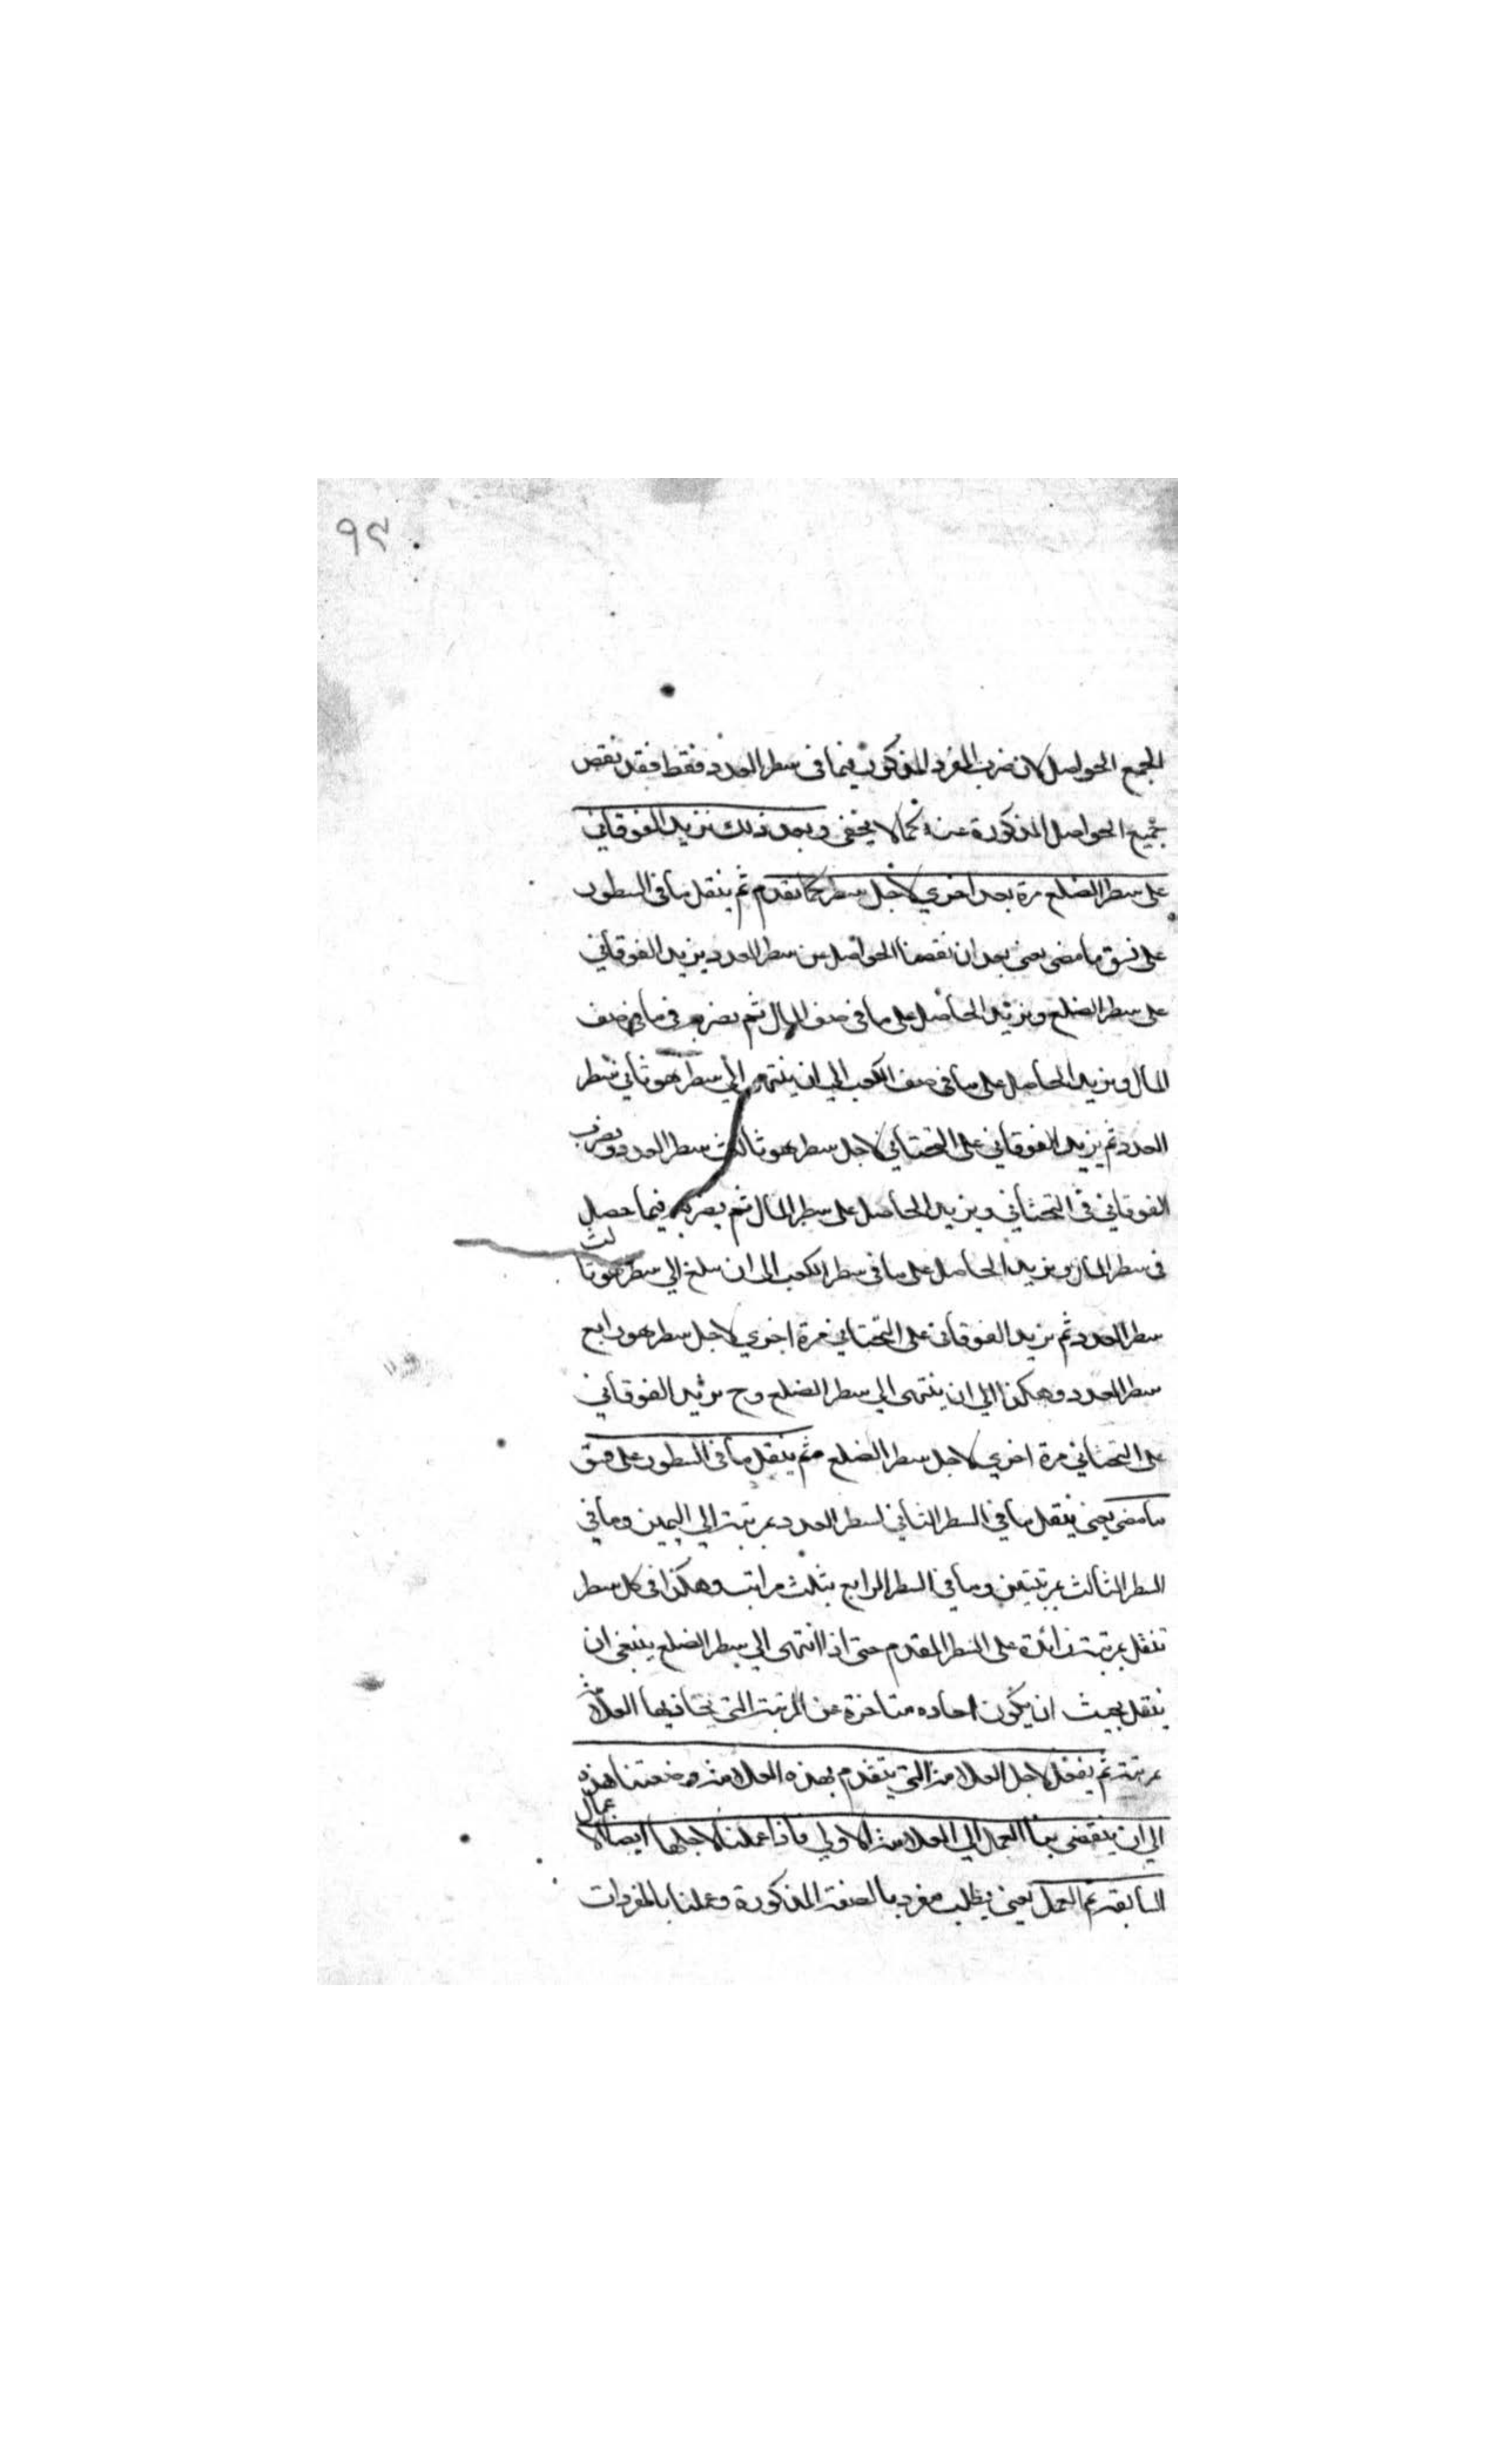 ٩٢
الجمع الحواصل لان ضرب المفرد المذكور فيما فى سطر العدد فقط فقد نقص
جميع الحواصل المذكورة عنه كما لا يخفى وبعد ذلك نزيد الفوقاني
على سطر الضلع مرة بعد اخري لاجل سطر كما تقدم ثم ينقل ما فى السطور
على نسق ما مضى يعنى بعد ان نقصنا الحواصل من سطر العدد يزيد الفوقاني
على سطر الضلع ونزيد الحاصل على ما فى صف المال ثم يضربه فى ما فى صف
المال ونزيد الحاصل على ما فى صف الكعب الي ان ينتهى الي سطر هو ثاني سطر
العدد ثم يزيد الفوقاني على التحتاني لاجل سطر هو ثالث سطر العدد ويضرب
الفوقاني فى التحتاني ويزيد الحاصل على سطر المال ثم يضربه فيما حصل
فى سطر المال ونزيد الحاصل على ما فى سطر الكعب الى ان يبلغ الي سطر هو ثالث
سطر العدد ثم يزيد الفوقاني على التحتاني مرة اخري لاجل سطر هو رابع
سطر العدد وهكذا الي ان ينتهى الي سطر الضلع وح نزيد الفوقاني
على التحتاني مرة اخري لاجل سطر الضلع ثم ينقل ما فى السطور على نسق
ما مضى يعنى ينقل ما في السطر الثاني لسطر العدد بمرتبة الي اليمين وما في
السطر الثالث بمرتبتين وما في السطر الرابع بثلث مراتب وهكذا فى كل سطر
تنقل بمرتبة زائدة على السطر المقدم حتى اذا انتهى الي سطر الضلع ينبغى ان
ينقل بحيث ان يكون احاده متاخرة عن المرتبة التى يحاذيها العلامة
بمرتبة ثم يفعل لاجل العلامة التي يتقدم بهذه العلامة وضعتنا هذه
الي ان ينقضى بنا العمل الي العلامة الاولي فاذا عملنا لاجلها ايضا الاعمال
السابقة تم العمل يعنى يطلب مفرد بالصفة المذكورة وعملنا بالمفردات